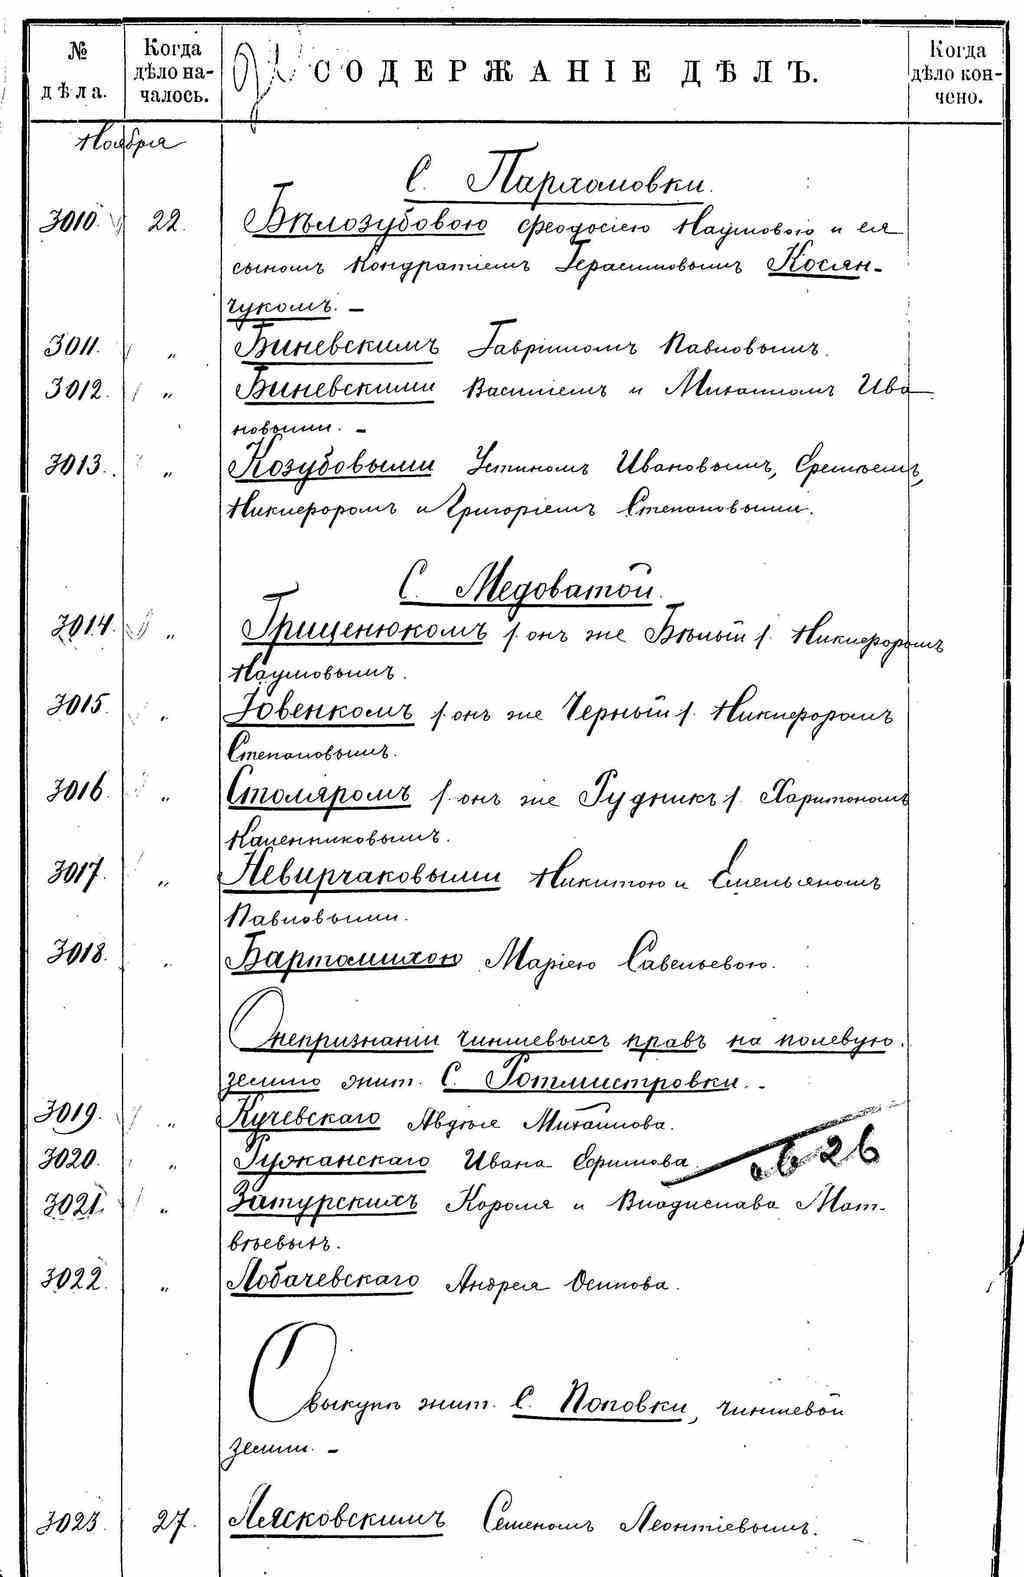 № дѣла.
Когда дѣло началось.
СОДЕРЖАНІЕ ДѢЛЪ.
Когда дѣло кончено.
Ноября
С. Пархомовки.
3010. 22. Бѣлозубовою Феодосіею Наумовою и ея
сыномъ Кондратіемъ Герасимовымъ Косян-
чукомъ. —
3011. „ Биневскимъ Гавріиломъ Павловымъ.
3012. „ Биневскими Василіемъ и Михаиломъ Ива
новыми. —
3013. „ Козубовыми Устиномъ Ивановымъ,
Никифоромъ и Григоріемъ Степановыми.
С. Медоватой.
3014. „ Грищенюкомъ /. онъ же Бѣлый /. Никифоромъ
Наумовымъ.
3015. „ Ювенкомъ /. онъ же Черный /. Никифоромъ
Степановымъ.
3016. „ Столяромъ /. онъ же Рудникъ /. Харитономъ
Каленниковымъ.
3017. „ Невирчаковыми Никитою и Емельяномъ
Павловыми.
3018. „ Бартошихою Маріею Савельевою.
О непризнаніи чиншевыхъ правъ на полевую
землю жит. С. Ротмистровки. -
3019. „ Кучевскаго Авдѣя Михайлова.
3020. „ Ружанскаго Ивана Ефимова. об 26
3021. „ Затурскихъ Короля и Владислава Мат-
вѣевыхъ.
3022. „ Лобачевскаго Андрея Осипова.
О выкупѣ жит. С. Поповки, чиншевой
земли. —
3023. 27. Лясковскимъ Семеномъ Леонтіевымъ.